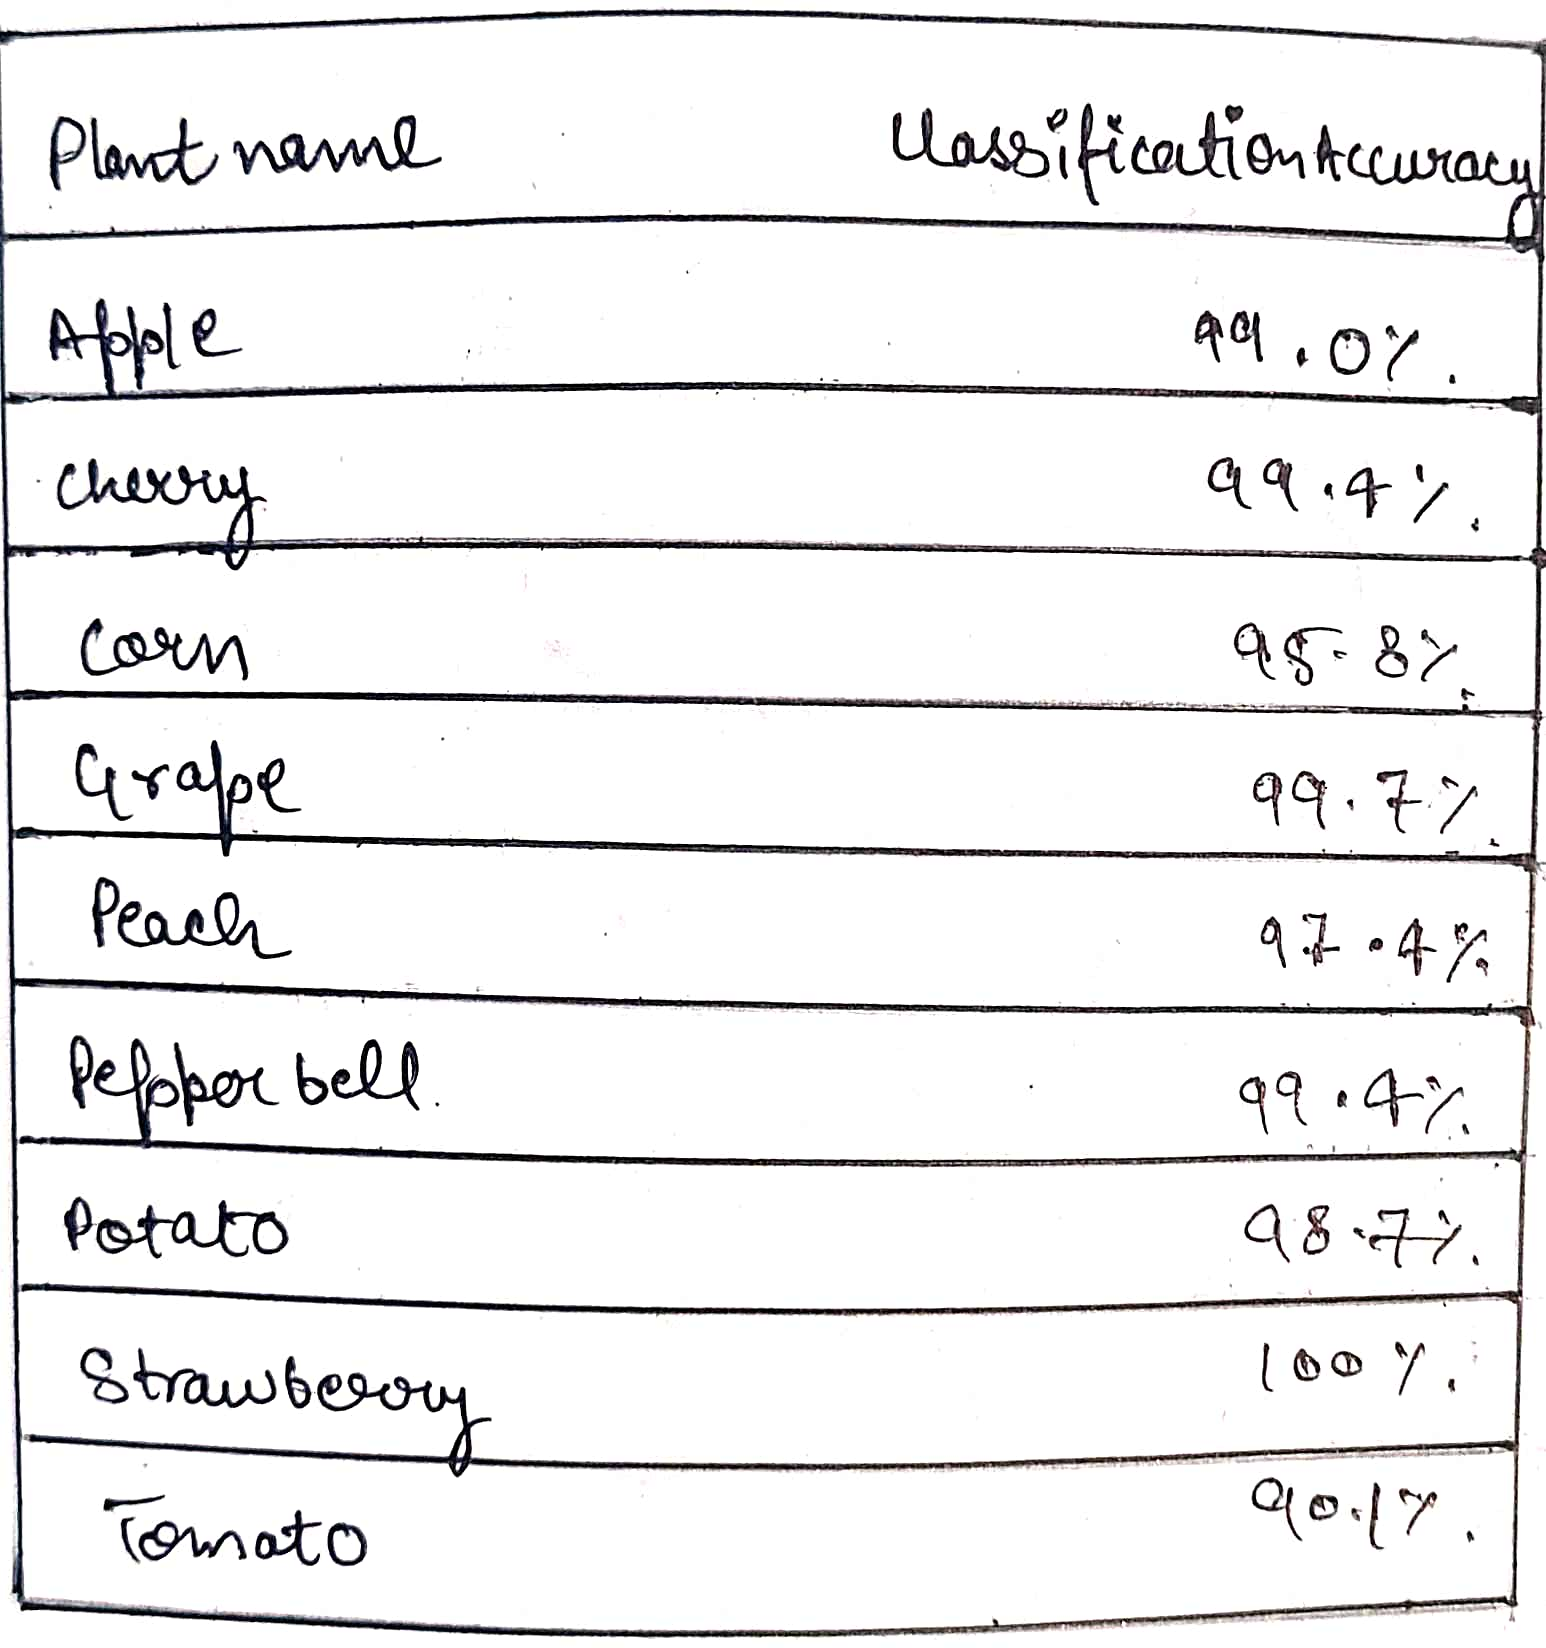 Plant name Classification Accuracy
Apple 99.0%.
Cherry 99.4%.
Corn 95.8%.
Grape 99.7%.
Peach 97.4%
Pepper bell.  99.4%.
Potato 98.7%.
Strawberry 100%.
Tomato 90.1%.